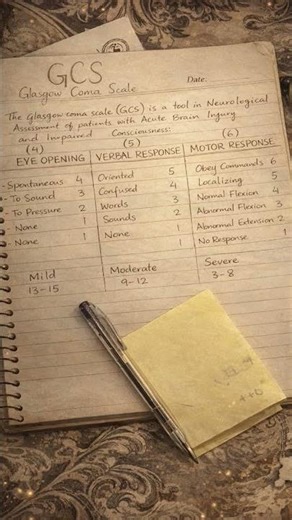 GCS
Glasgow Coma Scale Date:
The Glasgow coma scale (GCS) is a tool in Neurological
Assessment of patients with Acute Brain Injury
and Impaired Consciousness:
(4) (5) (6)
EYE OPENING VERBAL RESPONSE MOTOR RESPONSE
- Spontaneous 4 Oriented 5 Obey Commands 6
- To Sound 3 Confused 4 Localizing 5
- To Pressure 2 Words 3 Normal Flexion 4
- None 1 Sounds 2 Abnormal Flexion 3
- None 1 None 1 Abnormal Extension 2
1 No Response 1
Mild Moderate Severe
13-15 9-12 3-8